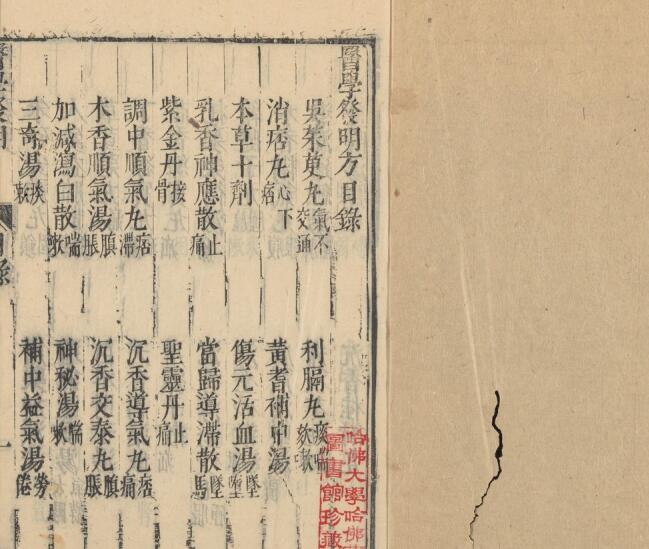 醫學發明方目錄
吳茱萸丸氣不交通　利膈丸痰喘欬嗽
消痞丸心下痞　黃耆補中湯
本草十劑　傷元活血湯墜墮
乳香神應散止痛　當歸導滯散馬
紫金丹接骨　聖靈丹止痛
調中順氣丸痞滯　沉香導氣丸痞痛
木香順氣湯䐜脹　沉香交泰丸䐜脹
加減瀉白散喘嗽　神秘湯喘嗽
三奇湯嗽　補中益氣湯勞倦
醫學發明　目錄　一
哈佛大學哈佛
圖書館珍藏